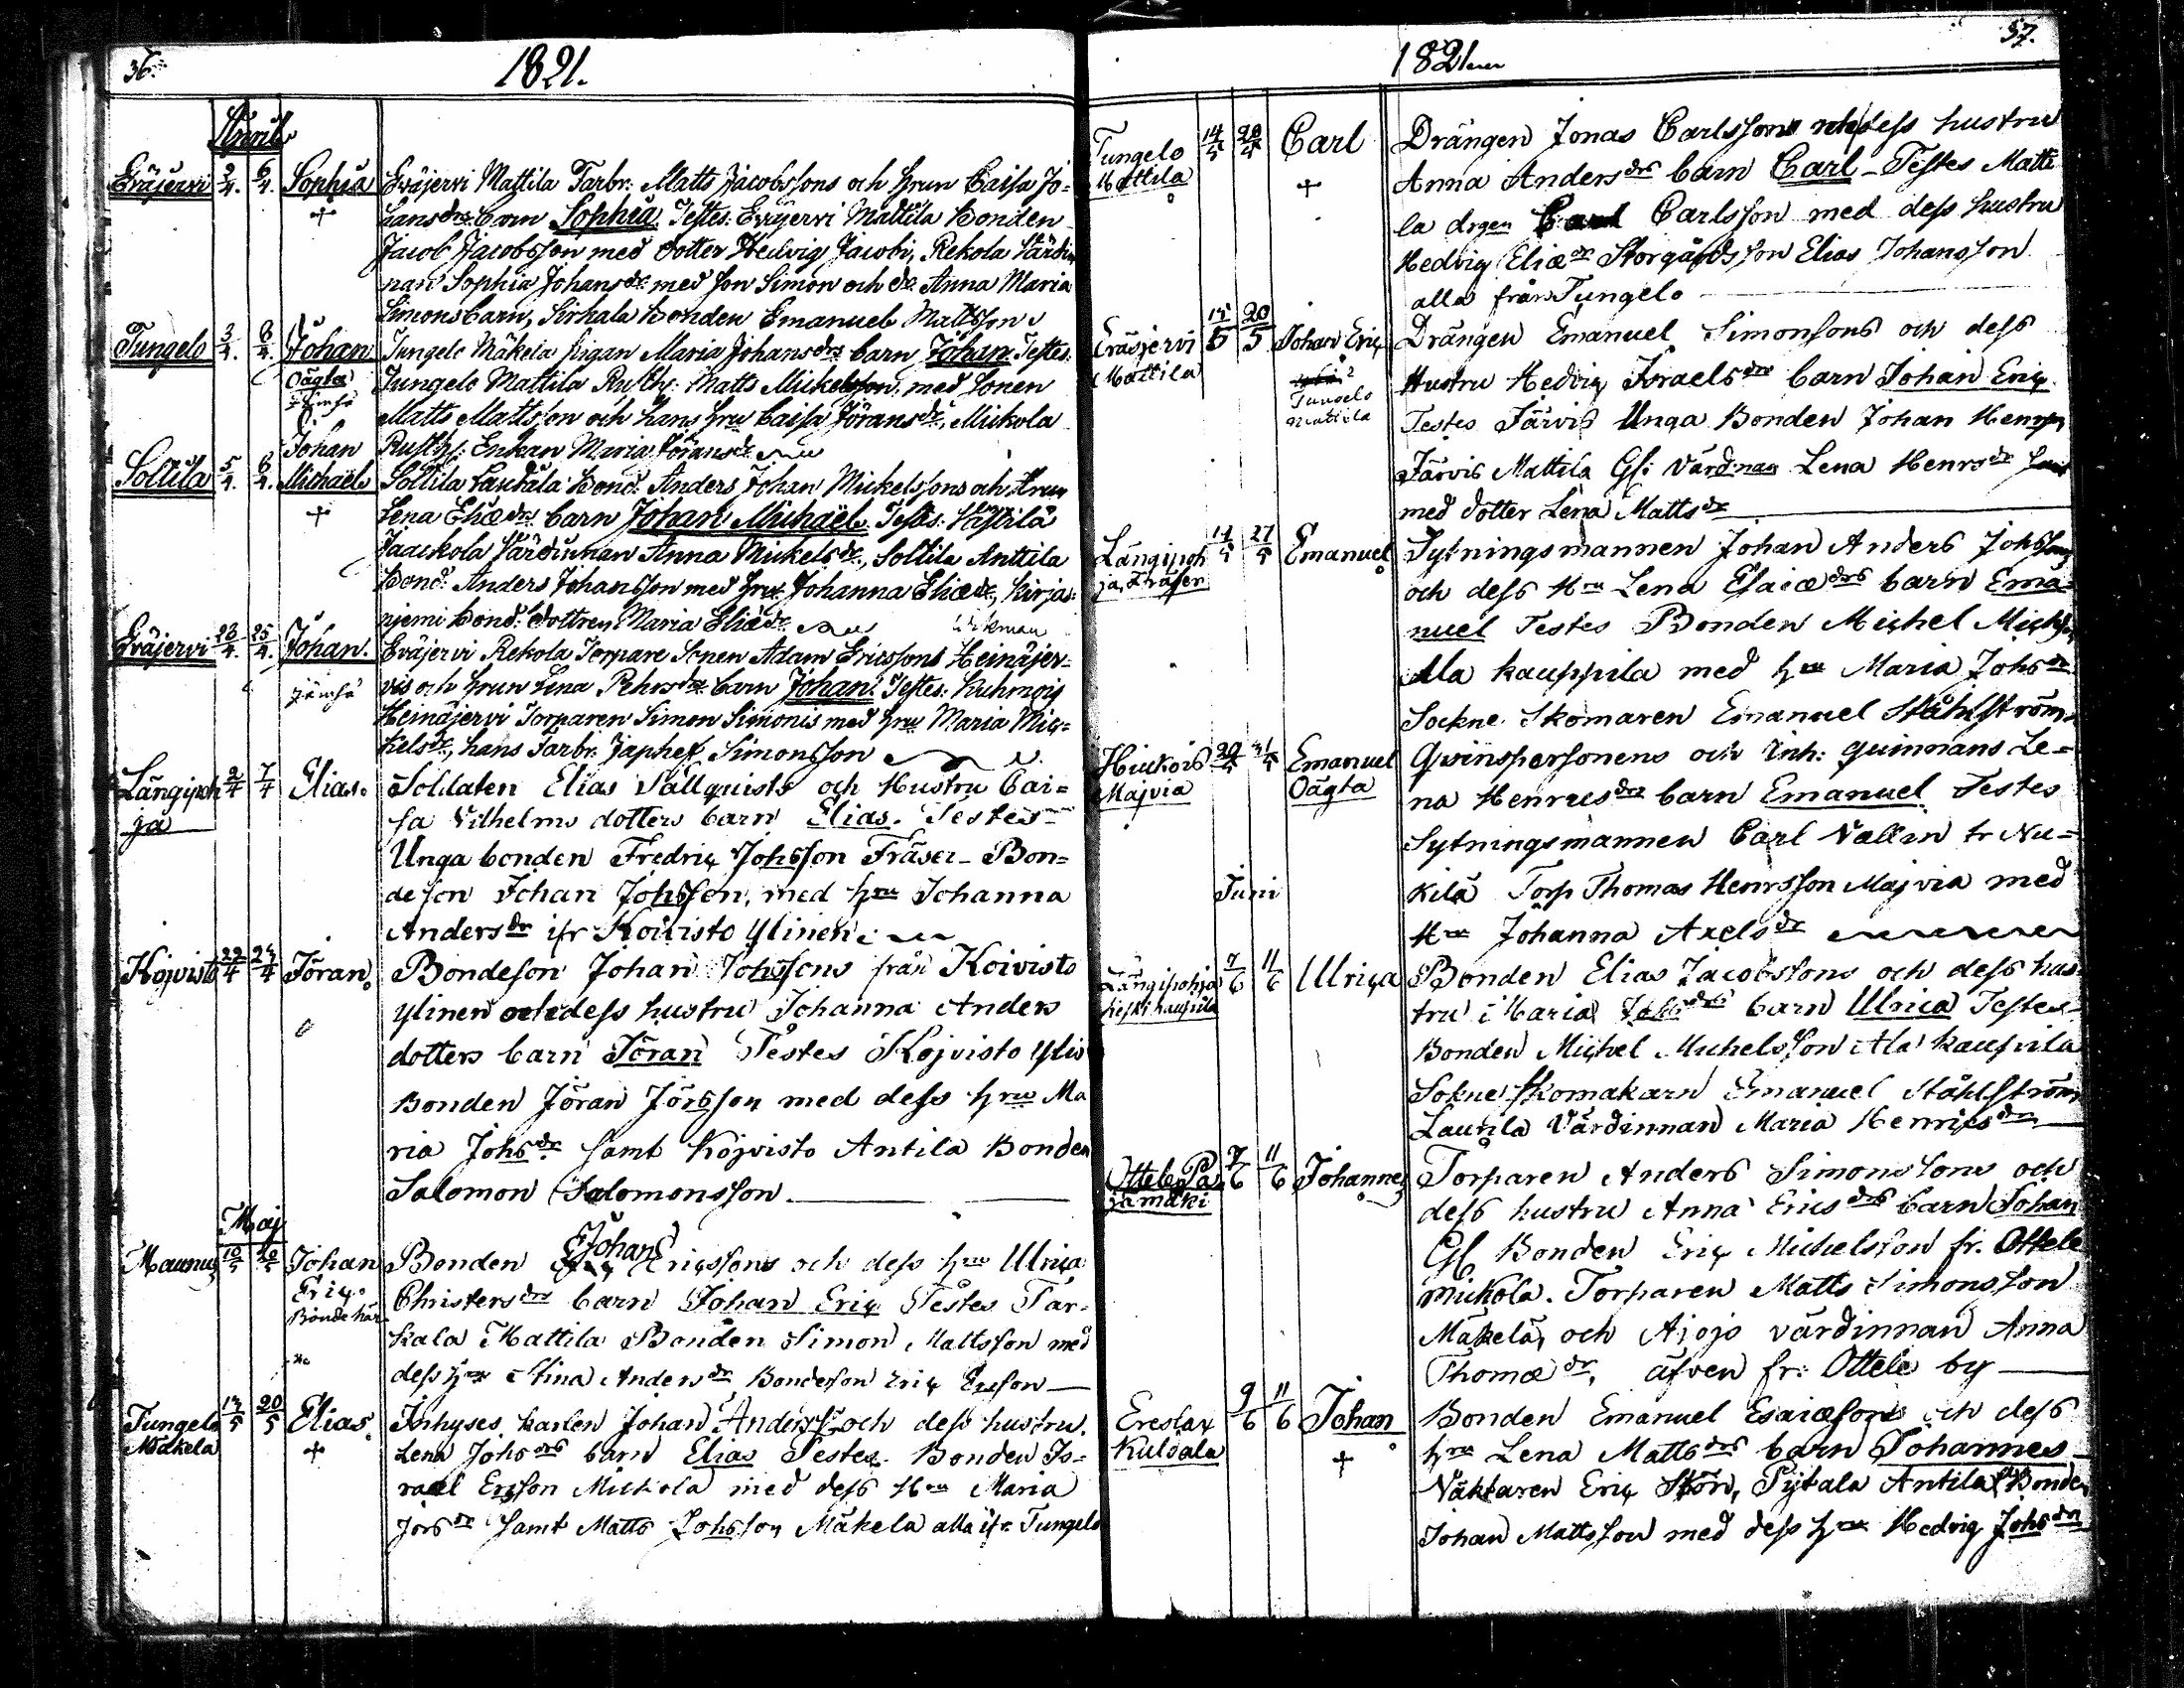 36.
1821.
April
Eväjervi 2/4. 6/4. Sophia Eväjervi Mattila Farbr: Matts Jacobssons och Hrun Caisa Jo=
hans drs barn Sophia. Testes: Eväjervi Mattila bonden
Jacob Jacobsson med dotter Hedvig Jacobi, Rekola Värdin
nan Sophia Johans dr med son Simon och dr Anna Maria
Simons barn, Sirkala bonden Emanuel Mattsson
Jungelo 3/4. 8/4. Johan Jungelo Mäkelä pigan Maria Johans drs barn Johan Testes:
Oägta Jungelo Mattila Rusth: Matts Mickelsson, med Sonen
Jämsä Matts Mattsson och hans hru Caisa Jörans dr, Mickola
Rusth: Enkan Maria Jörans dr
Johan
Michaël
Soltila 5/4. 8/4. Soltila Laudala bond: Anders Johan Mickelssons och Hrun
Lena Eliæ drs barn Johan Michaël. Testes: Västilä
Jaackola Värdinnan Anna Mickels dr, Soltila Anttila
bond: Anders Johansson med hru Johanna Eliæ dr, Kirjas=
njemi bond: dottren Maria Eliæ dr
Eväjervi 23/4. 25/4. Johan. Eväjervi Rekola Torpare Sonen Adam Ericssons Heinäjer=
Jämsä vis och hrun Lena Pehrs drs barn Johan. Testes: Kuhmois
Heinäjervi Torparen Simon Simonis med hru Maria Mic=
kels dr, hans Farbr. Japhet Simonsson
Längipoh 2/4 7/4 Elias. Soldaten Elias Vallquists och Hustru Cai=
ja sa Vilhelms dotters barn Elias. Testes
Unga bonden Fredric Johsson Fräser - Bon=
deson Johan Johsson, med hru Johanna
Anders dr ifr Koivisto Ylinen
Kojvisto 22/4 24/4 Jöran. Bondeson Johan Johssons från Koivisto
ylinen och dess hustru Johanna Anders
dotters barn Jöran Testes Kojvisto Ylis
Bonden Jöran Jörsson med dess hru Ma
ria Johs dr samt Kojvisto Antila Bonden
Salomon Salomonsson
Maj
Maunus 10/5 20/5 Johan Bonden Johan Ericssons och dess hru Ulrica
Eric. Christers drs barn Johan Eric Testes Tar-
Bonde här kala Mattila Bonden Simon Mattsson med
dess hru Stina Anders dr Bondeson Eric Ersson
Jungelo 17/5 20/5 Elias. Inhyses karlen Johan Anderss: och dess hustru
Mäkela Lena Johs drs barn Elias Testes. Bonden Is=
rael Ersson Mickola med dess Hru Maria
Jörs dr samt Matts Johsson Mäkela alla ifr Jungelo
37.
1821
Jungelo 14/5 20/5 Carl Drängen Jonas Carlssons och dess hustru
Mattila Anna Anders drs barn Carl - Testes Matti
la drgen Carlsson med dess hustru
Hedvig Eliæ dr Storgårds son Elias Johansson
alla från Jungelo
Eväjervi 15/5 20/5 Johan Eric Drängen Emanuel Simonsons och dess
Mattila Hustru Hedvig Israels drs barn Johan Eric
Jungelo
Mattila Testes Järvis Unga Bonden Johan Henrsn
Järvis Mattila Gl: värdinnan Lena Henrs dr
med dotter Lena Matts dr
Längipoh 14/5 27/5 Emanuel Sytningsmannen Johan Anders Johssons
ja Fräser och dess Hru Lena Esaiæ drs barn Ema=
nuel Testes Bonden Michel Michsn
Ala Kauppila med hru Maria Johs dr
Sockne Skomaren Emanuel Ståhlström
Hiukois 29/5 31/5 Emanuel Qvinspersonens och Inh: quinnans Le=
Majvia Oägta na Henrics drs barn Emanuel Testes
Sytningsmannen Carl Vallin fr Nu=
Juni
kila Torp Thomas Henrsson Majvia med
Hru Johanna Axels dr
Längipohja 7/6 11/6 Ulrica Bonden Elias Jacobssons och dess hus
Keski kaupila tru Maria Johs drs barn Ulrica Testes
Bonden Michel Michelsson Ala kaupila
Sokne Skomakarn Emanuel Ståhlström
Laurila Värdinnan Maria Henrics dr
Ottele Pa 7/6 11/6 Johannes Torparen Anders Simonssons och
jamäki dess hustru Anna Erics drs barn Johan
Gl Bonden Eric Michelsson fr. Ottele
Mickola. Torparen Matts Simonsson
Mäkelä, och Ajojo värdinnan Anna
Thomæ dr, äfven fr: Ottele by
Ereslax 9/6 11/6 Johan Bonden Emanuel Esaiæsons och dess
Kuldala hru Lena Matts drs barn Johannes
Väktaren Eric Stör, Pytala Antila Bonden
Johan Mattsson med dess hru Hedvig Johs dr